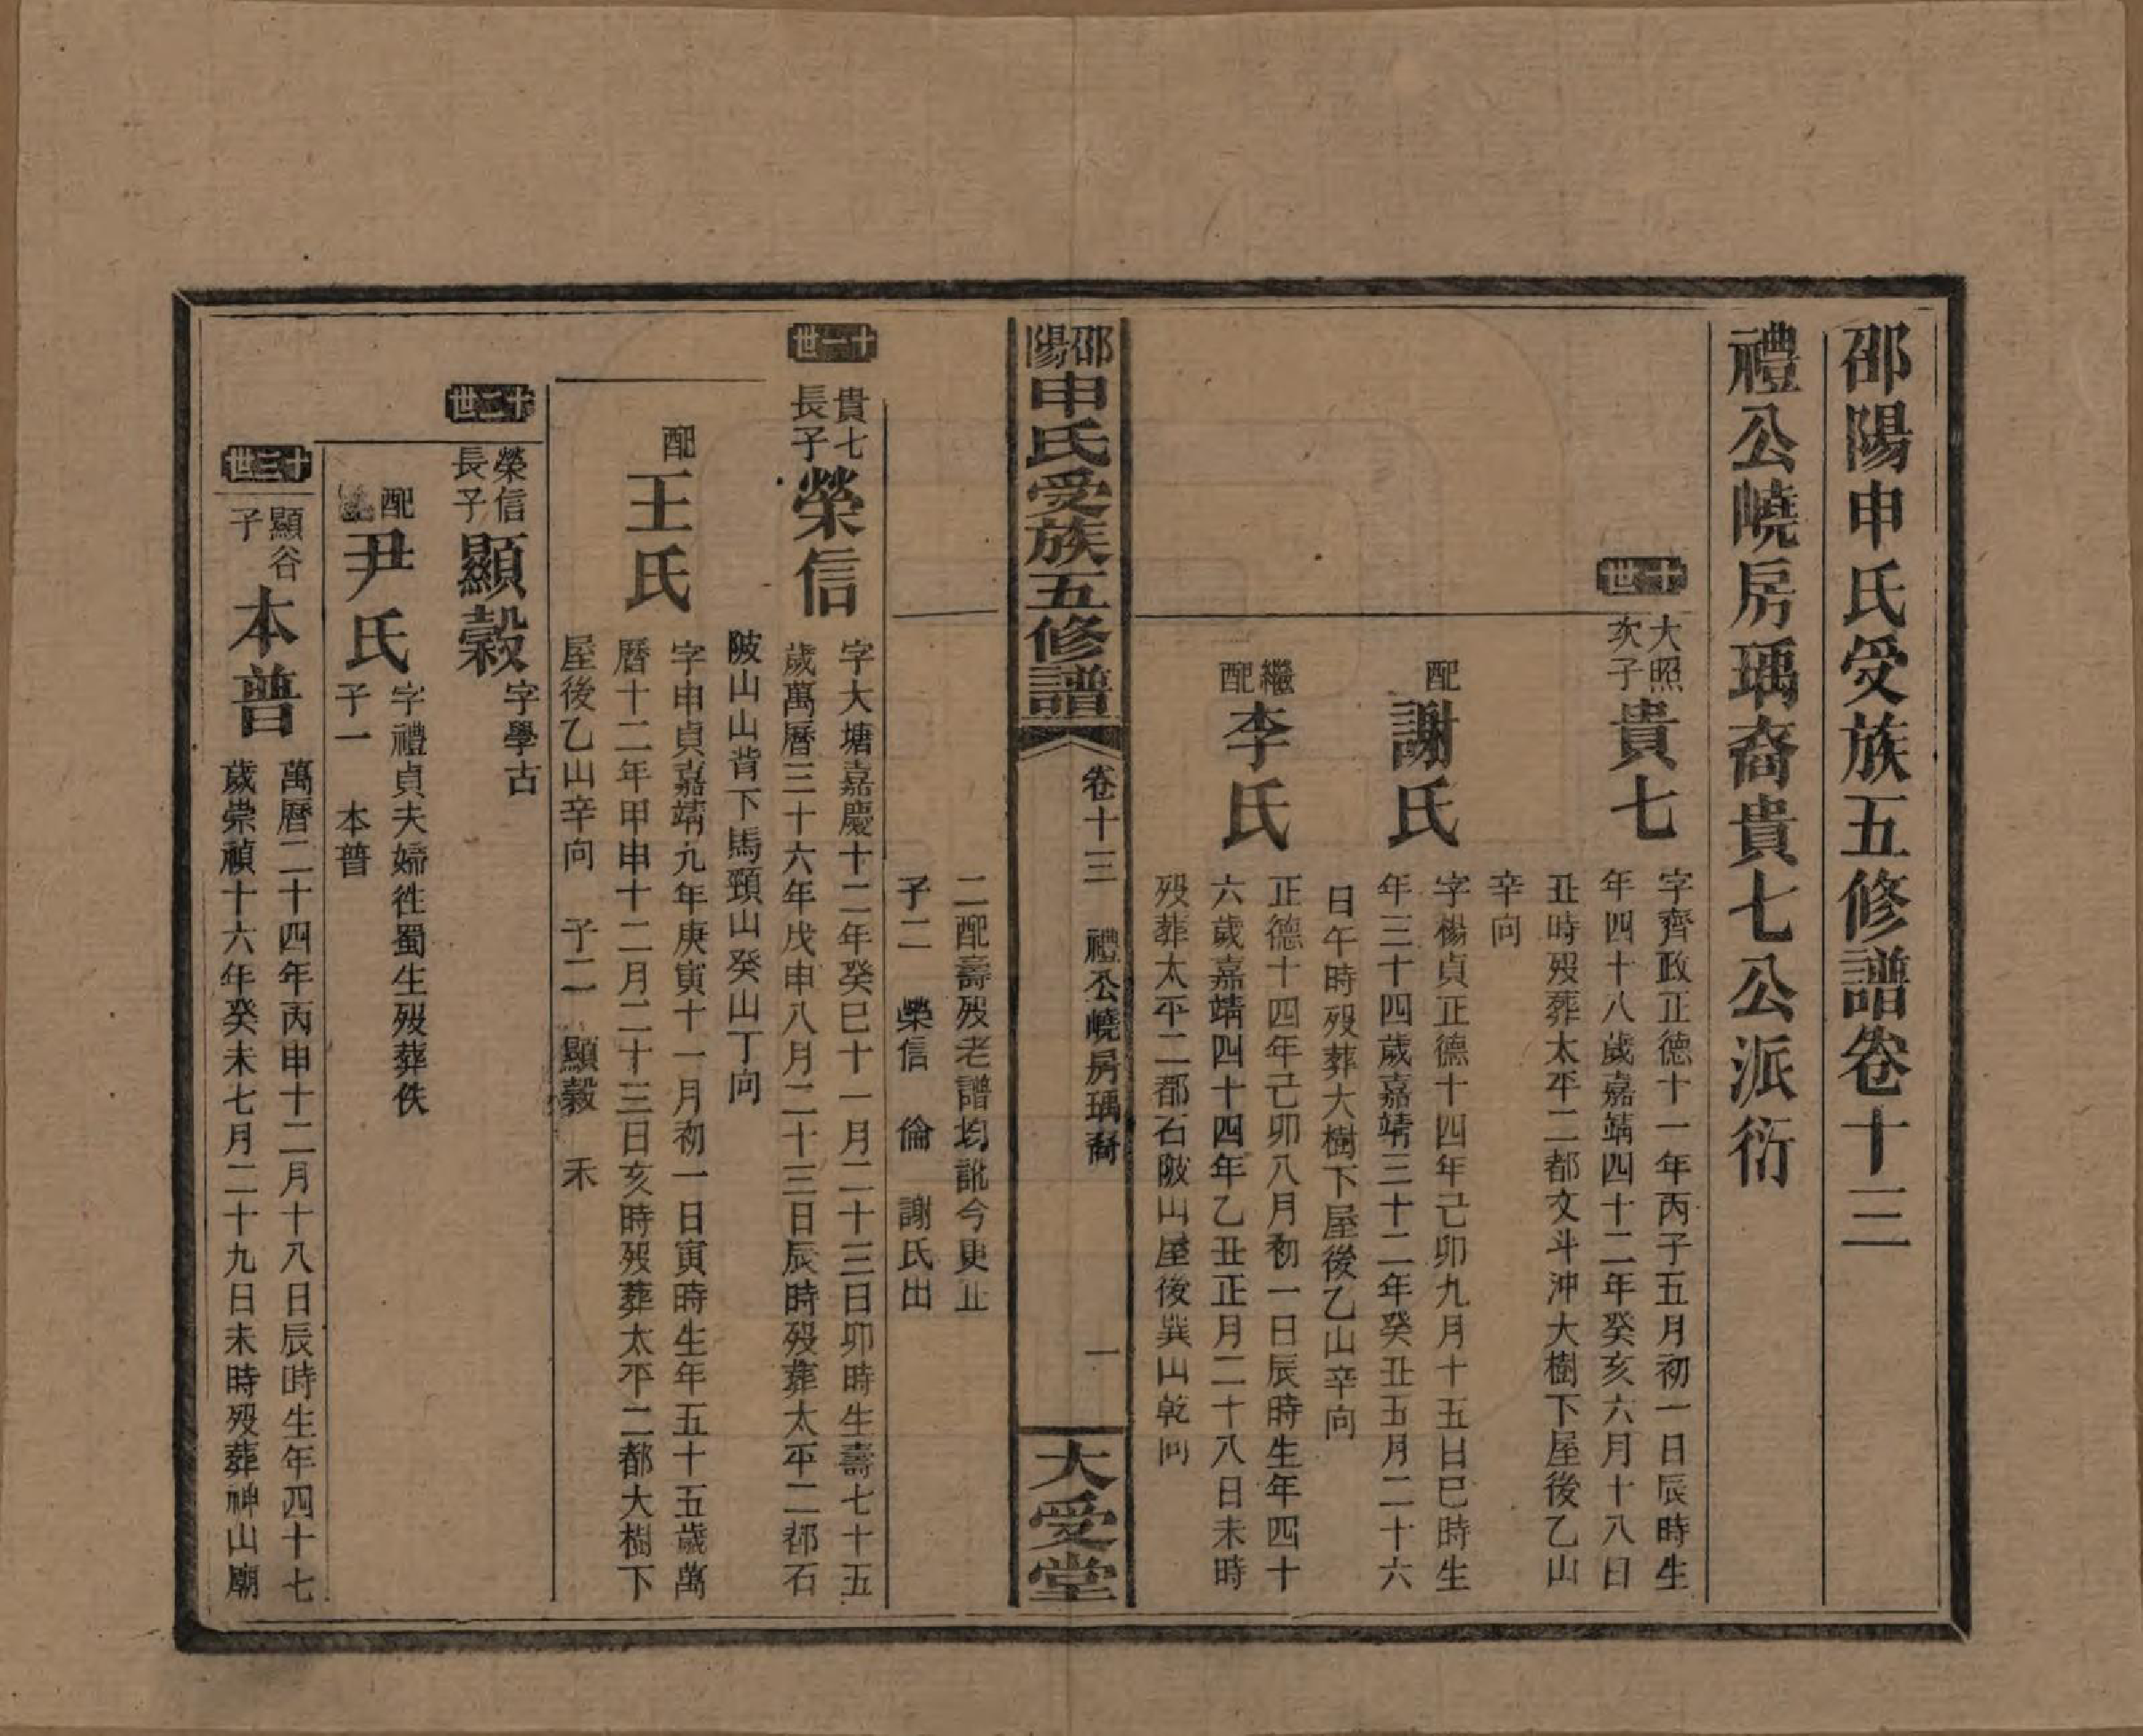 邵陽申氏受族五修譜卷十三
禮公嶢房瑀裔貴七公派衍
十世
大照次子
貴七
字齊政正德十一年丙子五月初一日辰時生
年四十八歲嘉靖四十二年癸亥六月十八日
丑時歿葬太平二都文斗沖大樹下屋後乙山
辛向
配
謝氏
字楊貞正德十四年己卯九月十五日巳時生
年三十四歲嘉靖三十二年癸丑五月二十六
日午時歿葬大樹下屋後乙山辛向
繼配
李氏
正德十四年己卯八月初一日辰時生年四十
六歲嘉靖四十四年乙丑正月二十八日未時
歿葬太平二都石陂山屋後巽山乾向
邵陽申氏受族五修譜
卷十三 禮公嶢房瑀裔
一
大受堂
二配壽歿老譜均訛今更正
子二 榮信 倫 謝氏出
十一世
貴七長子
榮信
字大塘嘉慶十二年癸巳十一月二十三日卯時生壽七十五
歲萬曆三十六年戊申八月二十三日辰時歿葬太平二都石
陂山山背下馬頸山癸山丁向
配
王氏
字申貞嘉靖九年庚寅十一月初一日寅時生年五十五歲萬
曆十二年甲申十二月二十三日亥時歿葬太平二都大樹下
屋後乙山辛向 子二 顯穀 禾
十二世
榮信長子
顯穀
字學古
配
尹氏
字禮貞夫婦徃蜀生歿葬佚
子一 本普
十三世
顯谷子
本普
萬曆二十四年丙申十二月十八日辰時生年四十七
歲崇禎十六年癸未七月二十九日未時歿葬神山廟